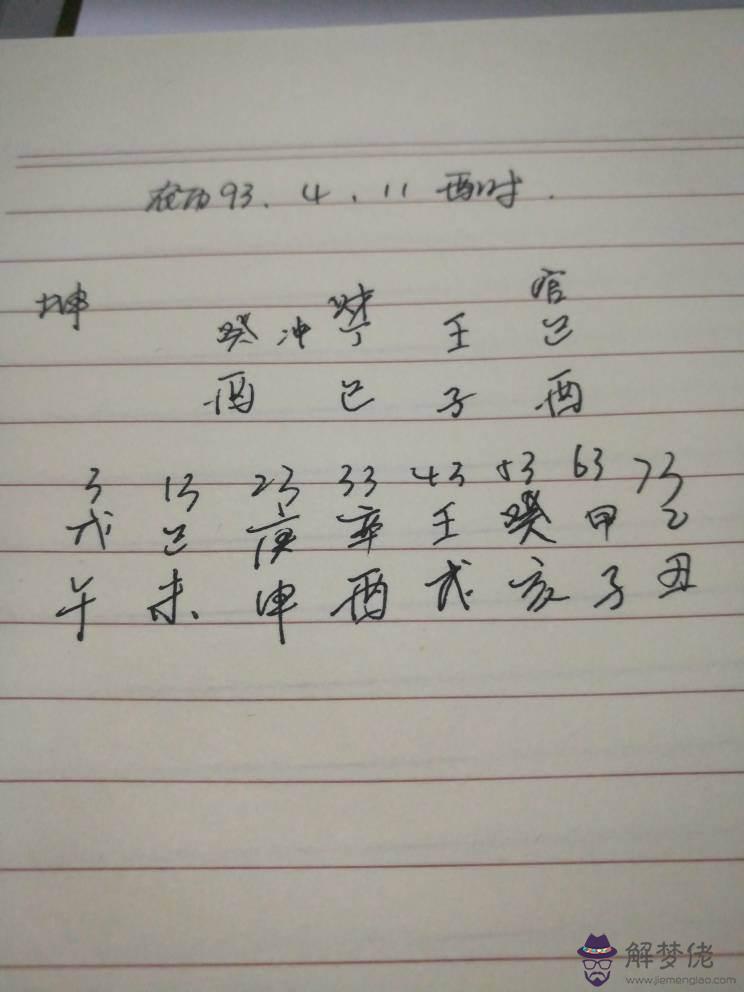 农历93.4.11 酉时.
坤 财 官
癸 冲 丁 壬 己
酉 巳 子 酉
3 13 23 33 43 53 63 73
戊 己 庚 辛 壬 癸 甲 乙
午 未 申 酉 戌 亥 子 丑
解梦佬
www.jiemenglao.com